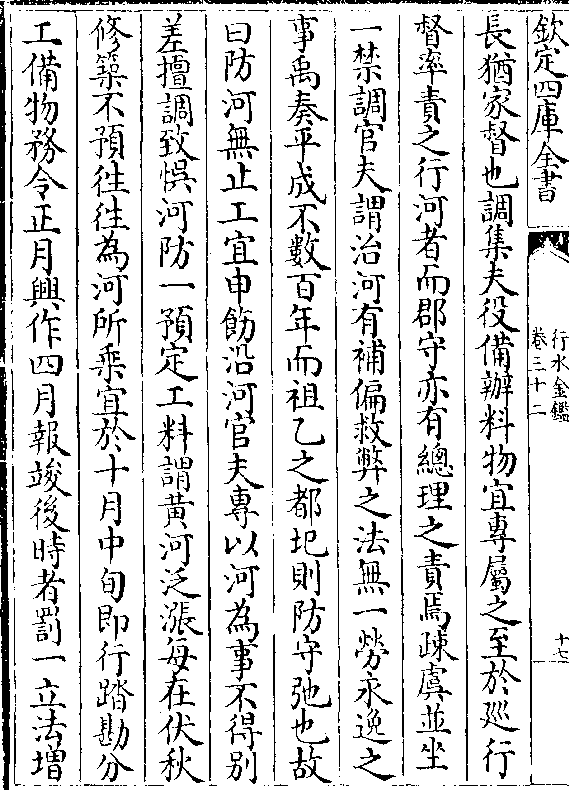 欽定四庫全書
行水金鑑
卷三十二
十七
長猶家督也調集夫役備辦料物宜專屬之至於廵行
督率責之行河者而郡守亦有總理之責焉疎虞並坐
一禁調官夫謂治河有補偏救弊之法無一勞永逸之
事禹奏平成不數百年而祖乙之都圮則防守弛也故
曰防河無止工宜申飭沿河官夫專以河為事不得别
差擅調致悞河防一預定工料謂黄河泛漲每在伏秋
修築不預徃徃為河所乗宜於十月中旬即行踏勘分
工備物務令正月興作四月報竣後時者罰一立法增